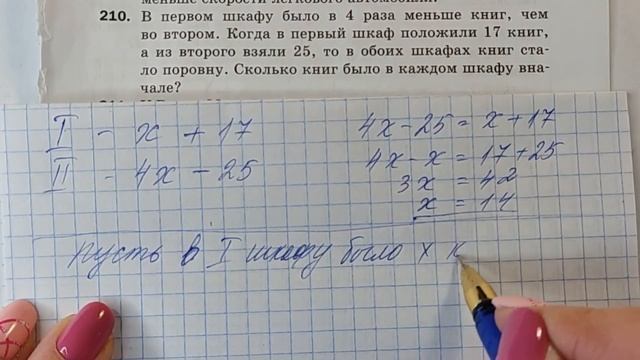 меньше скорости легкового автомобиля.
210. В первом шкафу было в 4 раза меньше книг, чем
во втором. Когда в первый шкаф положили 17 книг,
а из второго взяли 25, то в обоих шкафах книг ста-
ло поровну. Сколько книг было в каждом шкафу вна-
чале?
I - x + 17
II - 4x - 25
4x - 25 = x + 17
4x - x = 17 + 25
3x = 42
x = 14
Пусть в I шкафу было x к